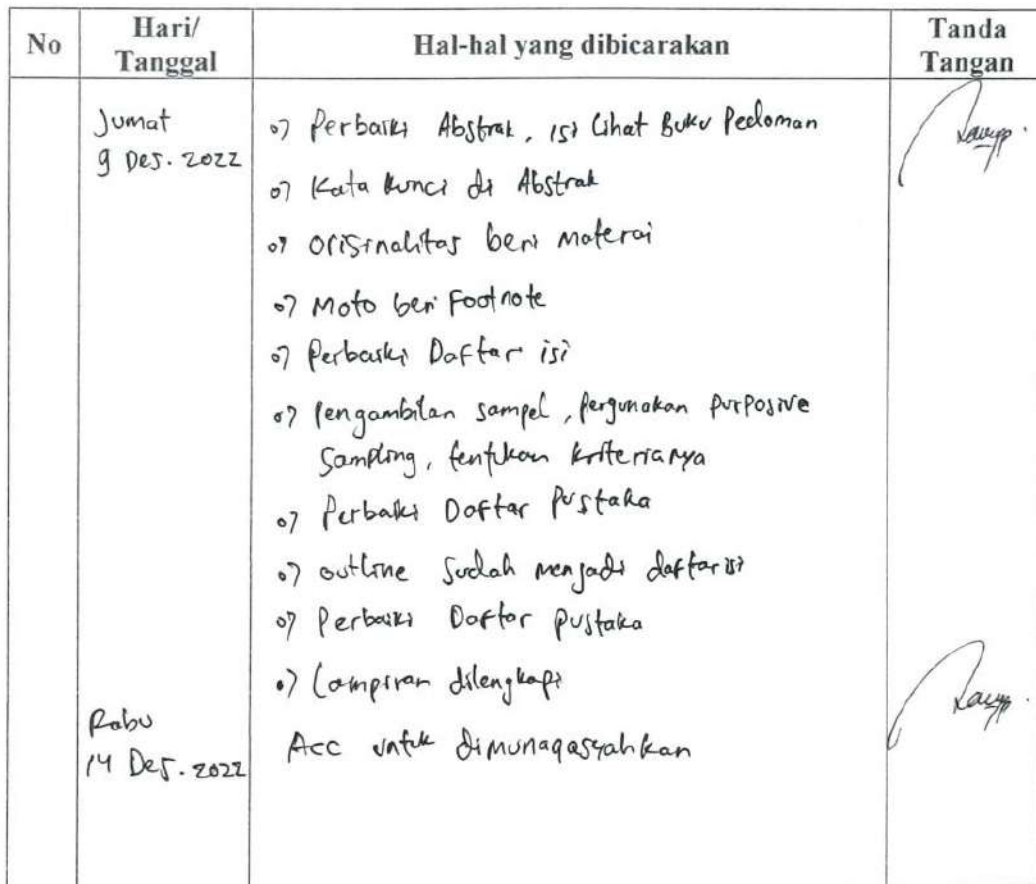 No
Hari/
Tanggal
Hal-hal yang dibicarakan
Tanda
Tangan
Jumat
9 Des. 2022
o) Perbaiki Abstrak, isi Lihat Buku Pedoman
o) Kata kunci di Abstrak
o) Orisinalitas beri materai
o) Moto beri Footnote
o) Perbaiki Daftar isi
o) Pengambilan sampel, pergunakan purposive
Sampling, tentukan kriterianya
o) Perbaiki Daftar Pustaka
o) outline Sudah menjadi daftar isi
o) Perbaiki Daftar pustaka
o) Lampiran dilengkapi
Rabu
14 Des. 2022
Acc untuk dimunaqasyahkan